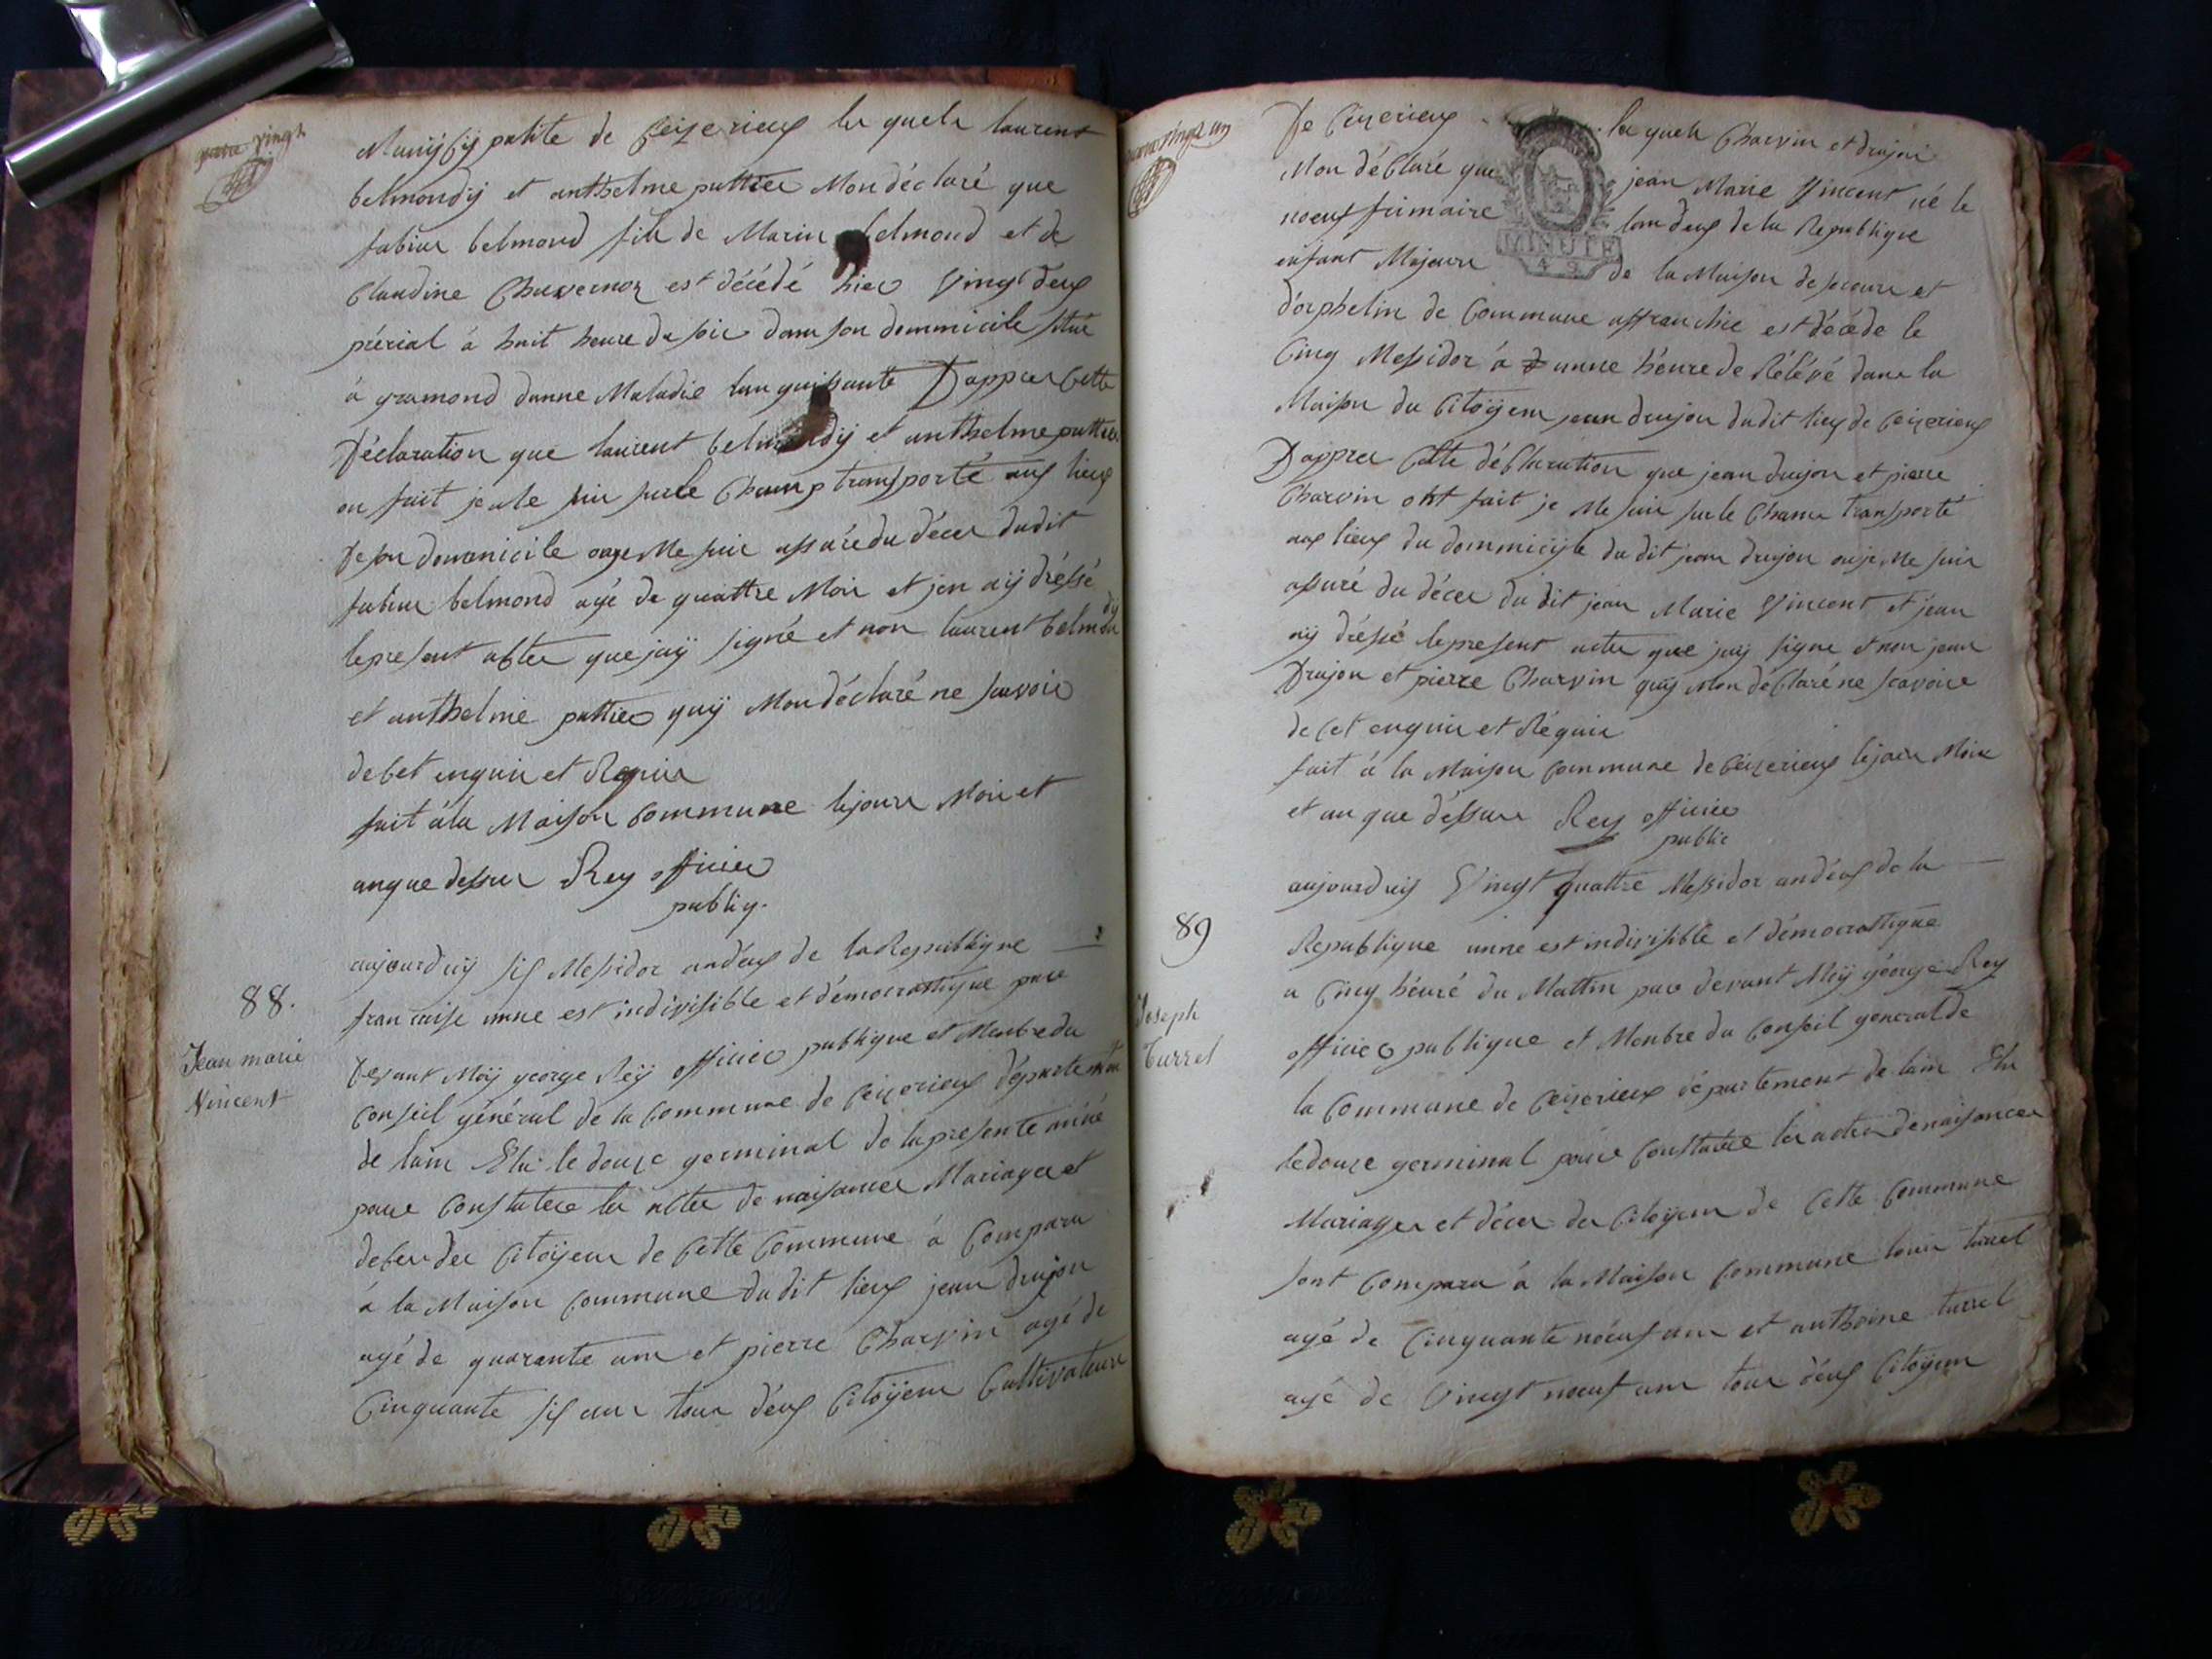 quatre vingt
Municipalite de Ceizerieux les quels laurent
belmondÿ et anthelme puttier Mon déclaré que
fabien belmond fils de Marin belmond et de
Claudine Chavernoz est décédé hier Vingt deux
prérial á huit heure du soir dans son dommicile situé
á gramond dunne Maladie languissante Dapprer Cette
Déclaration que laurent belmondÿ et anthelme puttier
on fait je me suis sur le Champ transporté aux lieux
De son dommicile ou je Me suis assuré du décer dudit
fabien belmond agé de quattre Mois et jen aÿ dréssé
le present acter que jaÿ signé et non laurent belmondÿ
et anthelme puttier quÿ Mon déclaré ne scavoir
de Cet enquis et Requis
fait á la Maison Commune le jour Mois et
anque dessus Rey officier
publiq.
88.
Jean marie
Vincent
aujourduÿ six Messidor an déux de la Republique
francaise unne est indivisible et démocrattique par
Devant Moÿ george Reÿ officier publique et Menbre du
Conseil général de la Commune de Ceizerieux département
de lain Elu le douze germinal de la presente année
pour Constater les acter de naissances Mariages et
décer der Citoÿens de Cette Commune á Comparu
á la Maison Commune du dit lieux jean drujon
agé de quarante ans et pierre Charvin agé de
Cinquante six ans tous déux Citoÿens Cultivateurs
quatre vingt un
De Ceizerieux les quels Charvin et drujon
Mon déClaré que jean Marie Vincent né le
noeuf frimaire lan deux de la Republique
enfant Majeur de la Maison de secours et
dorphelin de Commune affranchie est décéde le
Cinq Messidor á unne héure de Rélévé dans la
Maison du Citoÿen jean drujon dudit lieu de Ceizerieux
Dapprer Cette déClaration que jean drujon et pierre
Charvin ont fait je Me suis sur le Champ transporté
aux lieux du dommicile du dit jean drujon ou je me suis
assuré du décer du dit jean Marie Vincent et jean
aÿ dréssé le present acter que jaÿ signe et non jean
Drujon et pierre Charvin quÿ Mon déClaré ne scavoire
de Cet enquis et Réquis
fait á la Maison Commune de Ceizerieux le jour Mois
et an que déssus Rey officier
public
89
Joseph
turrel
aujourduij Vingt quattre Messidor an déux de la
Republique unne est indivisible et démocrattique
a Cinq héuré du Mattin par devant Moÿ géorge Rey
officier publique et Menbre du Conseil general de
la Commune de Ceizerieux département de lain Elu
le douze germinal pour Constater les acter de naissances
Mariages et décer der Citoÿens de Cette Commune
sont Comparu á la Maison Commune louis turrel
agé de Cinquante nœuf ans et anthoine turrel
agé de Vingt nœuf ans tous déux Citoÿens
MINUTE